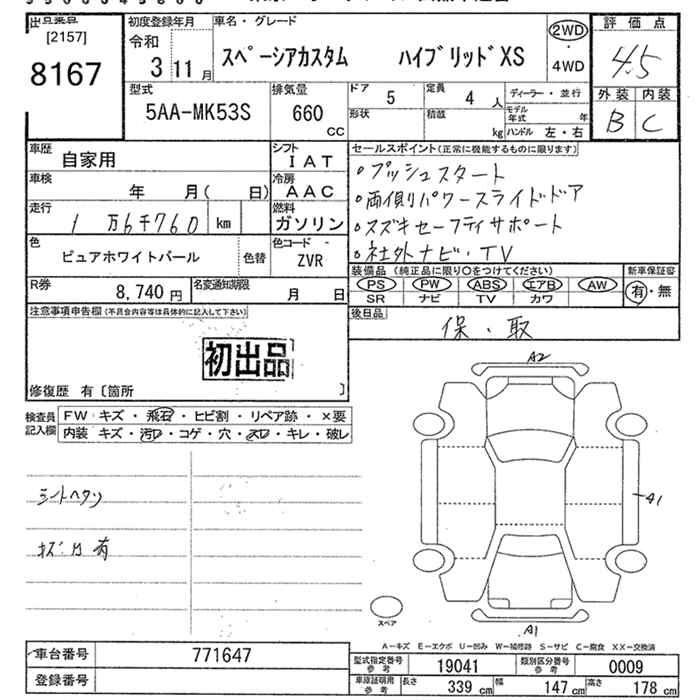 出品番号
[2157]
8167
初度登録年月
令和
3 11月
車名・グレード
スペーシアカスタム ハイブリッドXS
2WD
・
4WD
評価点
4.5
外装 内装
B C
型式
5AA-MK53S
排気量
660
CC
ドア 5
定員 4 人
形状
積載 kg
ディーラー・並行
モデル年式 年
ハンドル 左・右
車歴 自家用
シフト IAT
車検 年 月( 日)
冷房 AAC
走行 1万6千760 km
燃料 ガソリン
色 ピュアホワイトパール 色替
色コード - ZVR
R券 8,740円
名変通知期限 月 日
セールスポイント(正常に機能するものに限ります)
。プッシュスタート
。両側パワースライドドア
。スズキセーフティサポート
。社外ナビ・TV
装備品 (純正品に限り○をつけてください)
新車保証書
PS PW ABS エアB AW
SR ナビ TV カワ
有・無
後日品
保・取
注意事項申告欄(不具合内容等は具体的に記入して下さい)
初出品
修復歴 有〔箇所 〕
検査員記入欄
FW キズ・飛石・ヒビ割・リペア跡・×要
内装 キズ・汚れ・コゲ・穴・スレ・キレ・破レ
シートヘタリ
キズ凹有
A2
A1
A1
スペア
A－キズ E－エクボ U－凹み W－補修跡 S－サビ C－腐食 XX－交換済
車台番号 771647
登録番号
型式指定番号参考 19041
類別区分番号参考 0009
車庫証明用参考
長さ 339 cm
幅 147 cm
高さ 178 cm